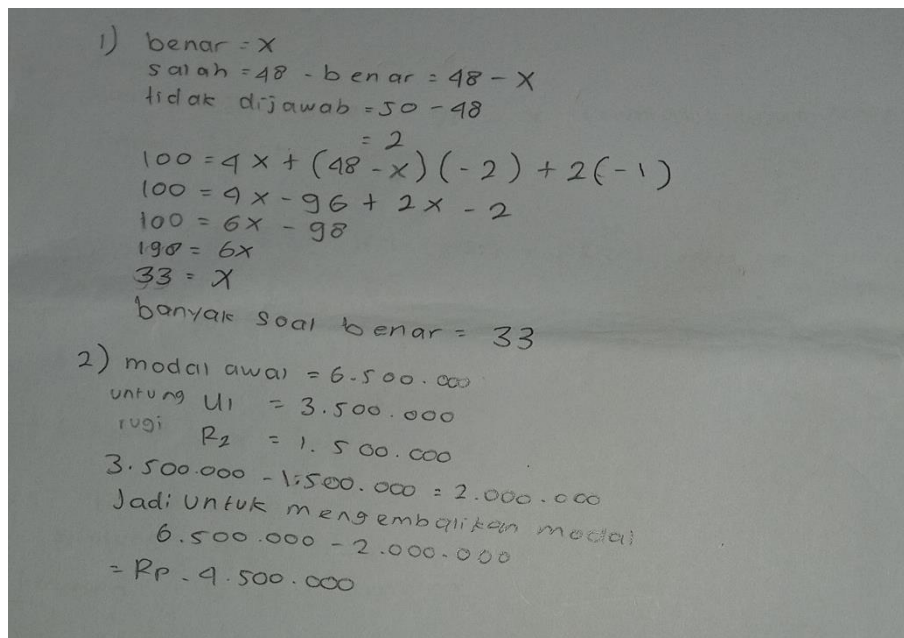 1) benar = x
salah = 48 - benar = 48 - x
tidak dijawab = 50 - 48
= 2
100 = 4x + (48 - x) (-2) + 2(-1)
100 = 4x - 96 + 2x - 2
100 = 6x - 98
198 = 6x
33 = x
banyak soal benar = 33
2) modal awal = 6.500.000
untung U1 = 3.500.000
rugi R2 = 1.500.000
3.500.000 - 1.500.000 = 2.000.000
Jadi untuk mengembalikan modal
6.500.000 - 2.000.000
= Rp. 4.500.000